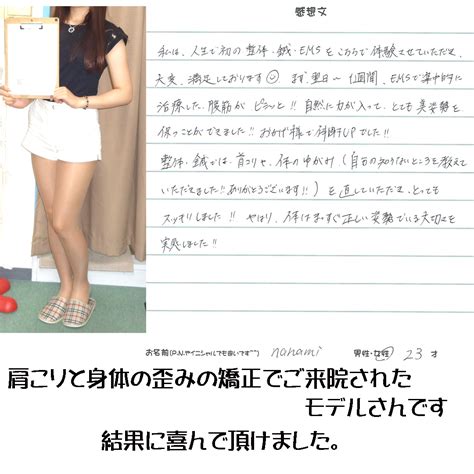 感想文
私は、人生で初の整体・鍼・EMSをこちらで体験させていただき、
大変、満足しております☺ まず翌日〜1週間、EMSで集中的に
治療した、腹筋が ピシッと!! 自然に力が入って、とても美姿勢を
保つことができました!! おかげ様で体幹UPでした!!
整体・鍼では、首コリや、体のゆがみ、(自分の知らないところを教えて
いただきました!! ありがとうございます!!) を直していただき、とっても
スッキリしました!! やはり、体はまっすぐ正しい姿勢でいる大切さを
実感しました!!
お名前(P.N.やイニシャルでも良いです^^) nanami 男性・女性 23 才
肩こりと身体の歪みの矯正でご来院された
モデルさんです
結果に喜んで頂けました。